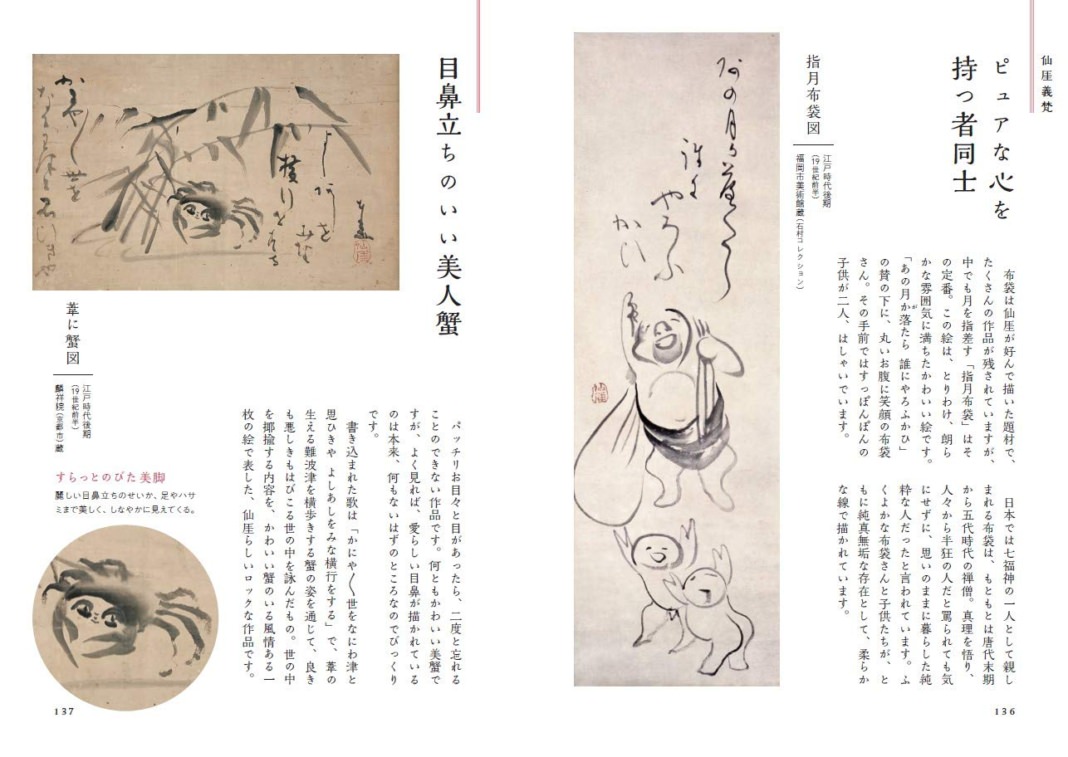 仙厓義梵
ピュアな心を
持つ者同士
指月布袋図
江戸時代後期
(19世紀前半)
福岡市美術館蔵(石村コレクション)
布袋は仙厓が好んで描いた題材で、
たくさんの作品が残されていますが、
中でも月を指差す「指月布袋」はそ
の定番。この絵は、とりわけ、朗ら
かな雰囲気に満ちたかわいい絵です。
「あの月か落たら 誰にやろふかひ」
が
の賛の下に、丸いお腹に笑顔の布袋
さん。その手前ではすっぽんぽんの
子供が二人、はしゃいでいます。
日本では七福神の一人として親し
まれる布袋は、もともとは唐代末期
から五代時代の禅僧。真理を悟り、
人々から半狂の人だと罵られても気
にせずに、思いのままに暮らした純
粋な人だったと言われています。ふ
くよかな布袋さんと子供たちが、と
もに純真無垢な存在として、柔らか
な線で描かれています。
あの月か落たら
誰に
やろふ
かひ
136
目鼻立ちのいい美人蟹
葦に蟹図
江戸時代後期
(19世紀前半)
麟祥院(京都市)蔵
パッチリお目々と目があったら、二度と忘れる
ことのできない作品です。何ともかわいい美蟹で
すが、よく見れば、愛らしい目鼻が描かれている
のは本来、何もないはずのところなのでびっくり
です。
書き込まれた歌は「かにや〱世をなにわ津と
思ひきや よしあしをみな横行をする」で、葦の
生える難波津を横歩きする蟹の姿を通じて、良き
も悪しきもはびこる世の中を詠んだもの。世の中
を揶揄する内容を、かわいい蟹のいる風情ある一
枚の絵で表した、仙厓らしいロックな作品です。
すらっとのびた美脚
麗しい目鼻立ちのせいか、足やハサ
ミまで美しく、しなやかに見えてくる。
137